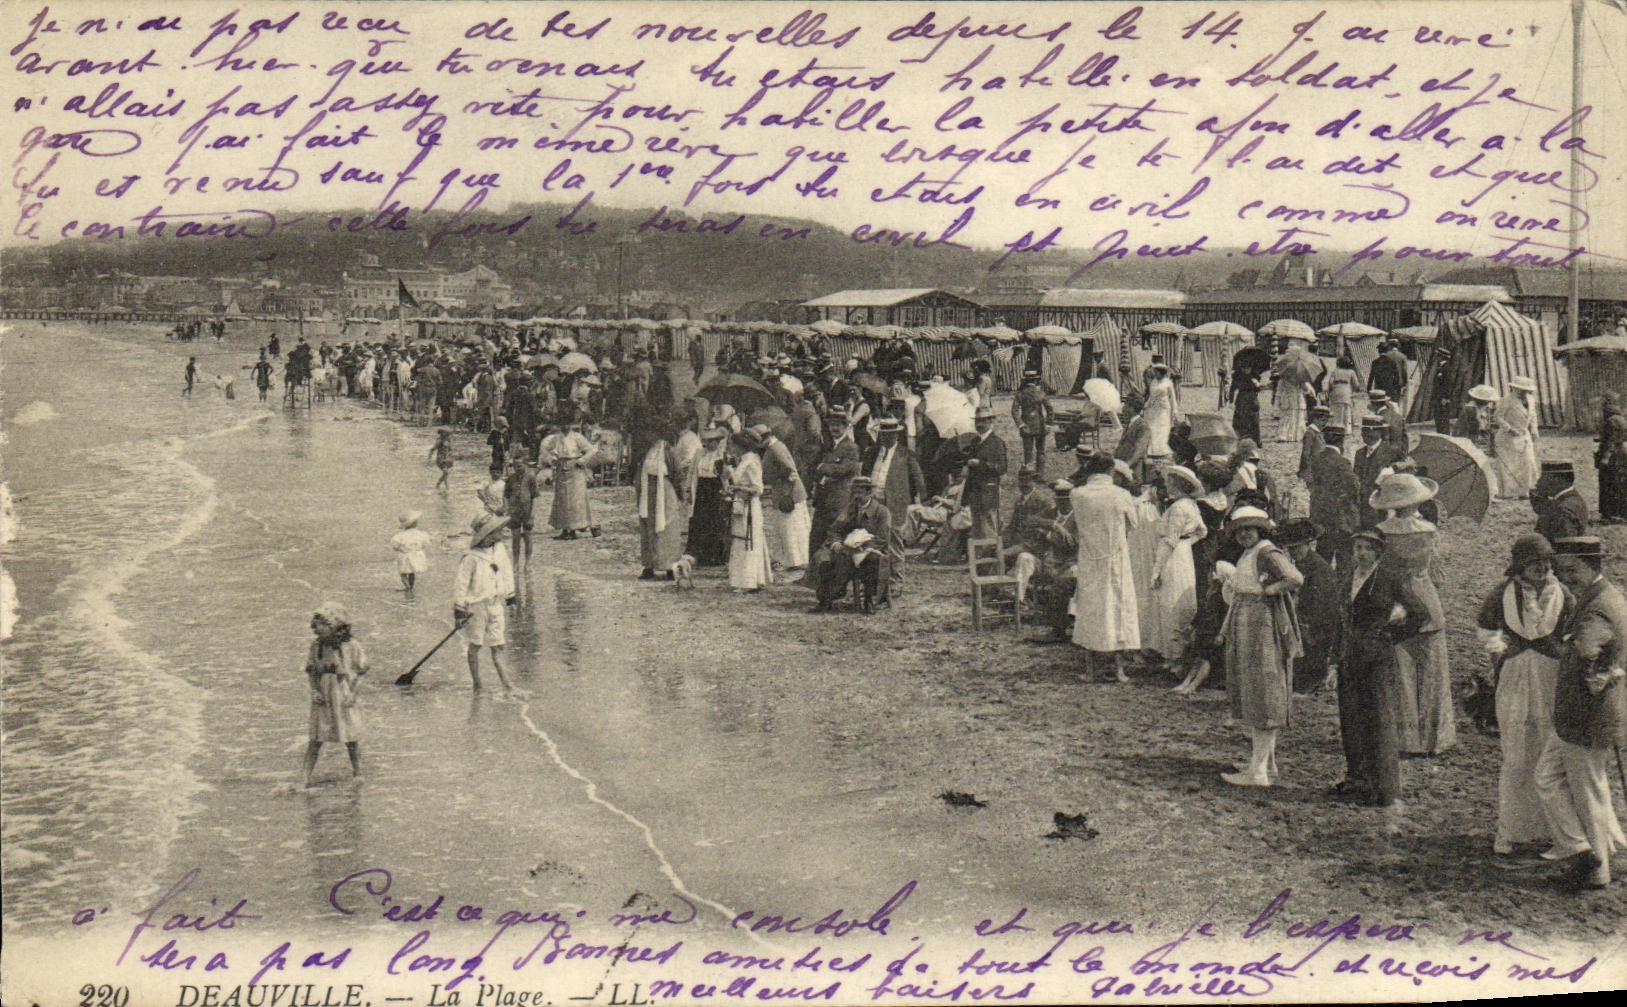 Je n'ai pas recu de tes nouvelles depuis le 14. J'ai revé
avant-hier que tu venais tu etais habillé en soldat, et je
n'allais pas assez vite pour habiller la petite afin d'aller a la
gare J'ai fait le même rêve que lorsque je te l'ai dit et que
tu es venu sauf que la 1ere fois tu etais en civil comme on reve
le contraire cette fois tu seras en civil et peut-etre pour tout
a fait C'est ce qui me console, et qui je l'espere ne
sera pas long. Bonnes amities de tout le monde. et reçois mes
meilleurs baisers Gabrielle
220 DEAUVILLE. — La Plage. — LL.